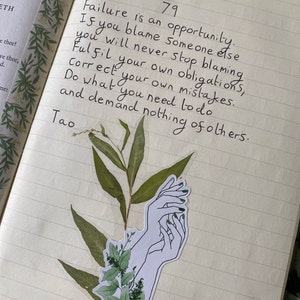 79
Failure is an opportunity.
If you blame someone else
you will never stop blaming
Fulfil your own obligations,
correct your own mistakes.
Do what you need to do
and demand nothing of others.
Tao